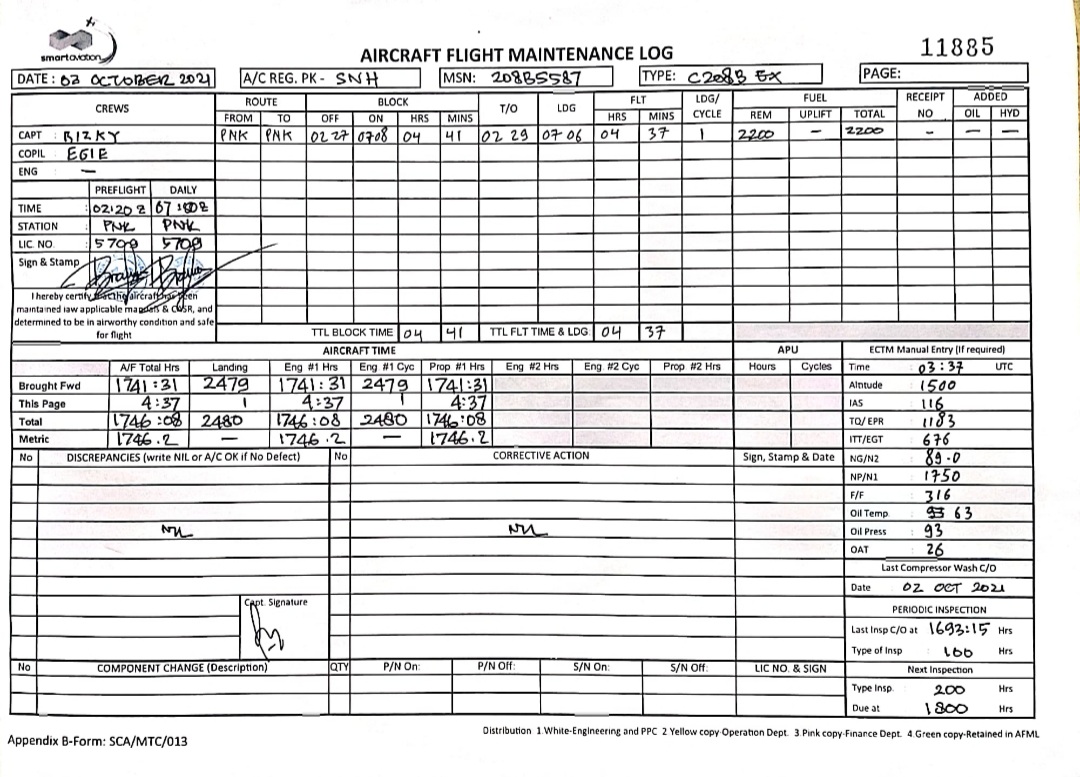 smartaviation
11885
AIRCRAFT FLIGHT MAINTENANCE LOG
DATE : 03 OCTOBER 2021 A/C REG. PK - SNH MSN: 208B5587 TYPE: C208B EX PAGE:
CREWS ROUTE BLOCK T/O LDG FLT LDG/ CYCLE FUEL RECEIPT NO ADDED
FROM TO OFF ON HRS MINS HRS MINS REM UPLIFT TOTAL OIL HYD
CAPT : RIZKY PNK PNK 02 27 0708 04 41 02 29 07 06 04 37 1 2200 - 2200 - - -
COPIL : EGIE
ENG -
PREFLIGHT DAILY
TIME : 02:20 Z 07:
STATION : PNK PNK
LIC NO. : 5709 5709
Sign & Stamp
I hereby certify that the aircraft has been
maintained iaw applicable manuals & CASR, and
determined to be in airworthy condition and safe
for flight
TTL BLOCK TIME 04 41 TTL FLT TIME & LDG 04 37
AIRCRAFT TIME APU ECTM Manual Entry (If required)
A/F Total Hrs Landing Eng #1 Hrs Eng #1 Cyc Prop #1 Hrs Eng #2 Hrs Eng #2 Cyc Prop #2 Hrs Hours Cycles Time : 03:37 UTC
Brought Fwd 1741:31 2479 1741:31 2479 1741:31 Altitude : 1500
This Page 4:37 1 4:37 1 4:37 IAS : 116
Total 1746:08 2480 1746:08 2480 1746:08 TQ/EPR : 1183
Metric 1746.2 - 1746.2 - 1746.2 ITT/EGT : 676
No DISCREPANCIES (write NIL or A/C OK if No Defect) No CORRECTIVE ACTION Sign, Stamp & Date NG/N2 : 89.0
NP/N1 : 1750
F/F : 316
Oil Temp : 63
NIL NIL Oil Press : 93
OAT : 26
Last Compressor Wash C/O
Date : 02 OCT 2021
Capt. Signature PERIODIC INSPECTION
Last Insp C/O at : 1693:15 Hrs
Type of Insp : 100 Hrs
No COMPONENT CHANGE (Description) QTY P/N On: P/N Off: S/N On: S/N Off: LIC NO. & SIGN Next Inspection
Type Insp. : 200 Hrs
Due at : 1800 Hrs
Distribution 1.White-Engineering and PPC 2 Yellow copy-Operation Dept. 3.Pink copy-Finance Dept. 4.Green copy-Retained in AFML
Appendix B-Form: SCA/MTC/013